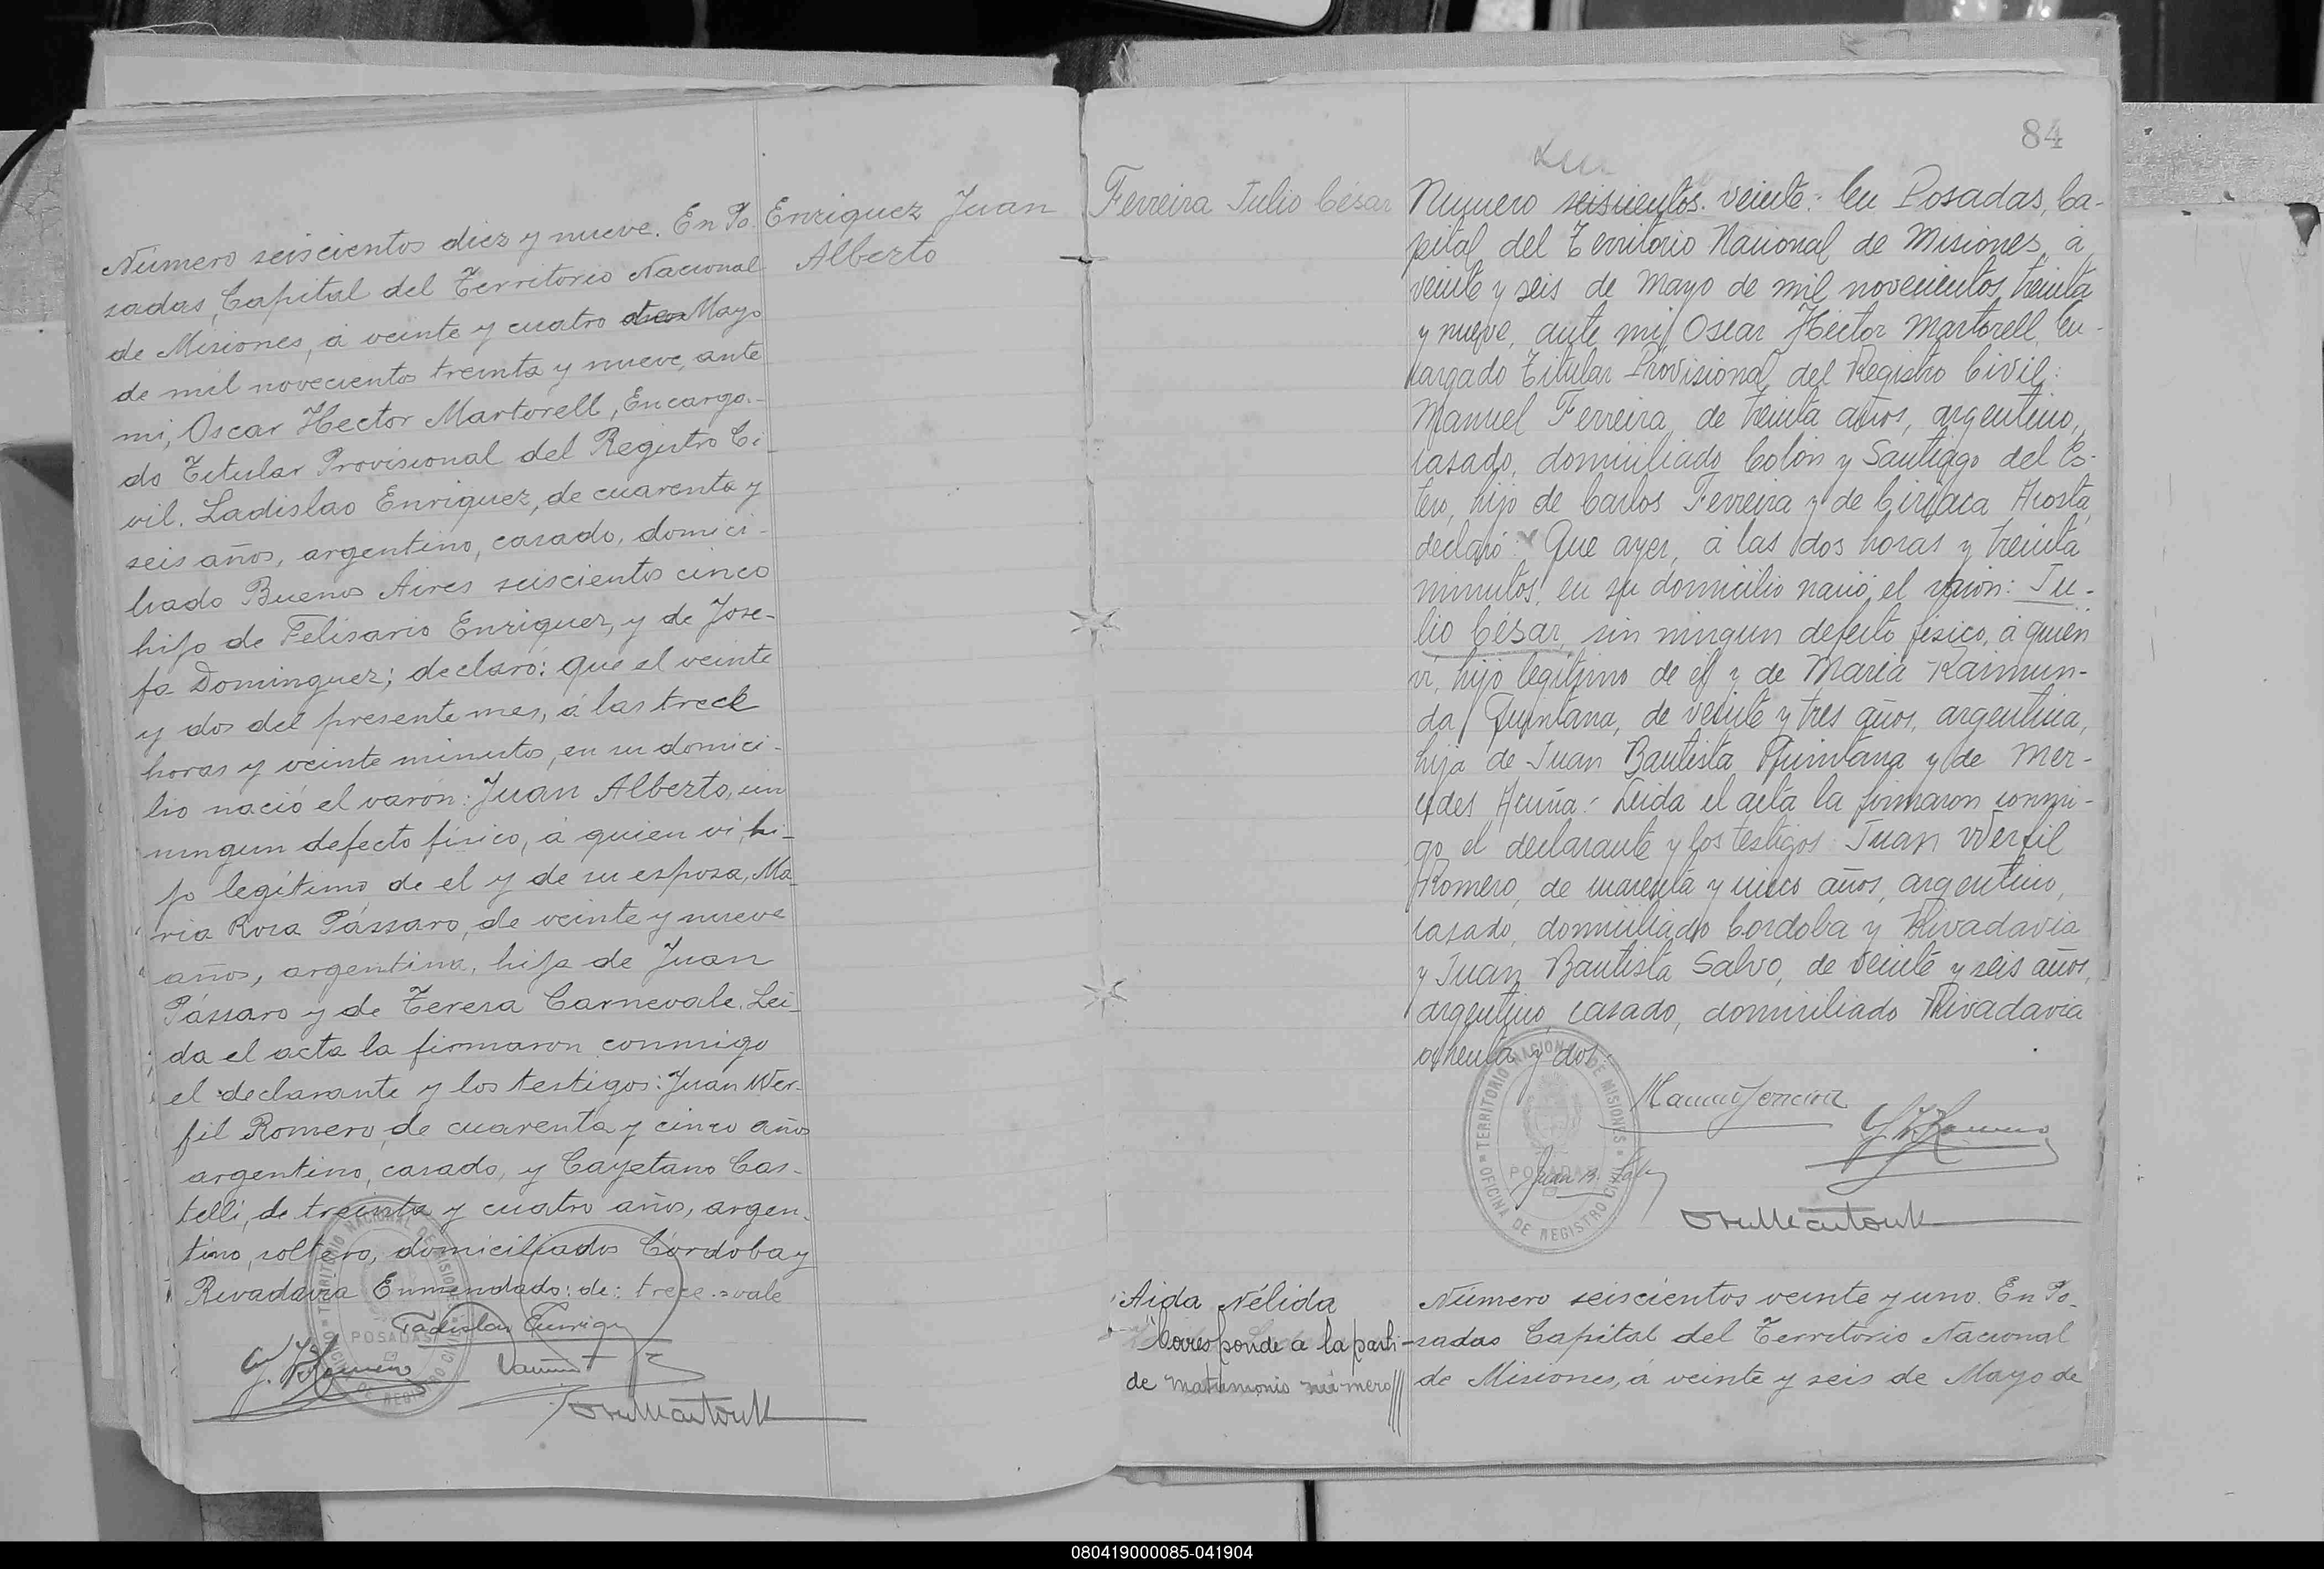 Número seiscientos diez y nueve. En Po
sadas, Capital del Territorio Nacional
de Misiones, á veinte y cuatro de Mayo
de mil novecientos treinta y nueve, ante
mi, Oscar Hector Martorell, Encarga-
do Titular Provisional del Registro Ci-
vil. Ladislao Enriquez, de cuarenta y
seis años, argentino, casado, domici-
liado Buenos Aires seiscientos cinco
hijo de Felisario Enriquez, y de Jose-
fa Dominguez; declaró: que el veinte
y dos del presente mes, á las trece
horas y veinte minutos, en su domici-
lio nació el varón: Juan Alberto, sin
ningun defecto físico, á quien vi, hi-
jo legítimo de el y de su esposa, Ma-
ria Rosa Pássaro, de veinte y nueve
años, argentina, hija de Juan
Pássaro y de Teresa Carnevale. Lei-
da el acta la firmaron conmigo
el declarante y los testigos: Juan Wer-
fil Romero, de cuarenta y cinco años
argentino, casado, y Cayetano Cas-
telli, de treinta y cuatro años, argen-
tino, soltero, domiciliados Córdoba y
Rivadavia Enmendado: de: trece = vale
Ladislao Enriquez
TERRITORIO NACIONAL DE MISIONES
POSADAS
OFICINA DE REGISTRO CIVIL
Enriquez Juan
Alberto
84
Ferreira Julio César
Numero seiscientos veinte: En Posadas, Ca-
pital del Territorio Nacional de Misiones, á
veinte y seis de Mayo de mil novecientos treinta
y nueve, ante mi, Oscar Héctor Martorell, En-
cargado Titular Provisional del Registro Civil:
Manuel Ferreira, de treinta años, argentino,
casado, domiciliado Colón y Santiago del Es-
tero, hijo de Carlos Ferreira y de Ciriaca Acosta,
declaró: Que ayer, á las dos horas y treinta
minutos, en su domicilio nació el varón: Ju-
lio César, sin ningun defecto físico, á quien
vi, hijo legitimo de el y de Maria Raimun-
da Quintana, de veinte y tres años, argentina,
hija de Juan Bautista Quintana y de Mer-
cedes Acuña:- Leida el acta la firmaron conmi-
go el declarante y los testigos: Juan Werfil
Romero, de cuarenta y cinco años, argentino,
casado, domiciliado Cordoba y Rivadavia
y Juan Bautista Salvo, de veinte y seis años,
argentino, casado, domiciliado Rivadavia
ochenta y dos.
TERRITORIO NACIONAL DE MISIONES
POSADAS
OFICINA DE REGISTRO CIVIL
Manuel Ferreira
Aida Nélida
Corresponde a la parti-
de matrimonio número
Número seiscientos veinte y uno. En Po-
sadas Capital del Territorio Nacional
de Misiones, á veinte y seis de Mayo de
080419000085-041904